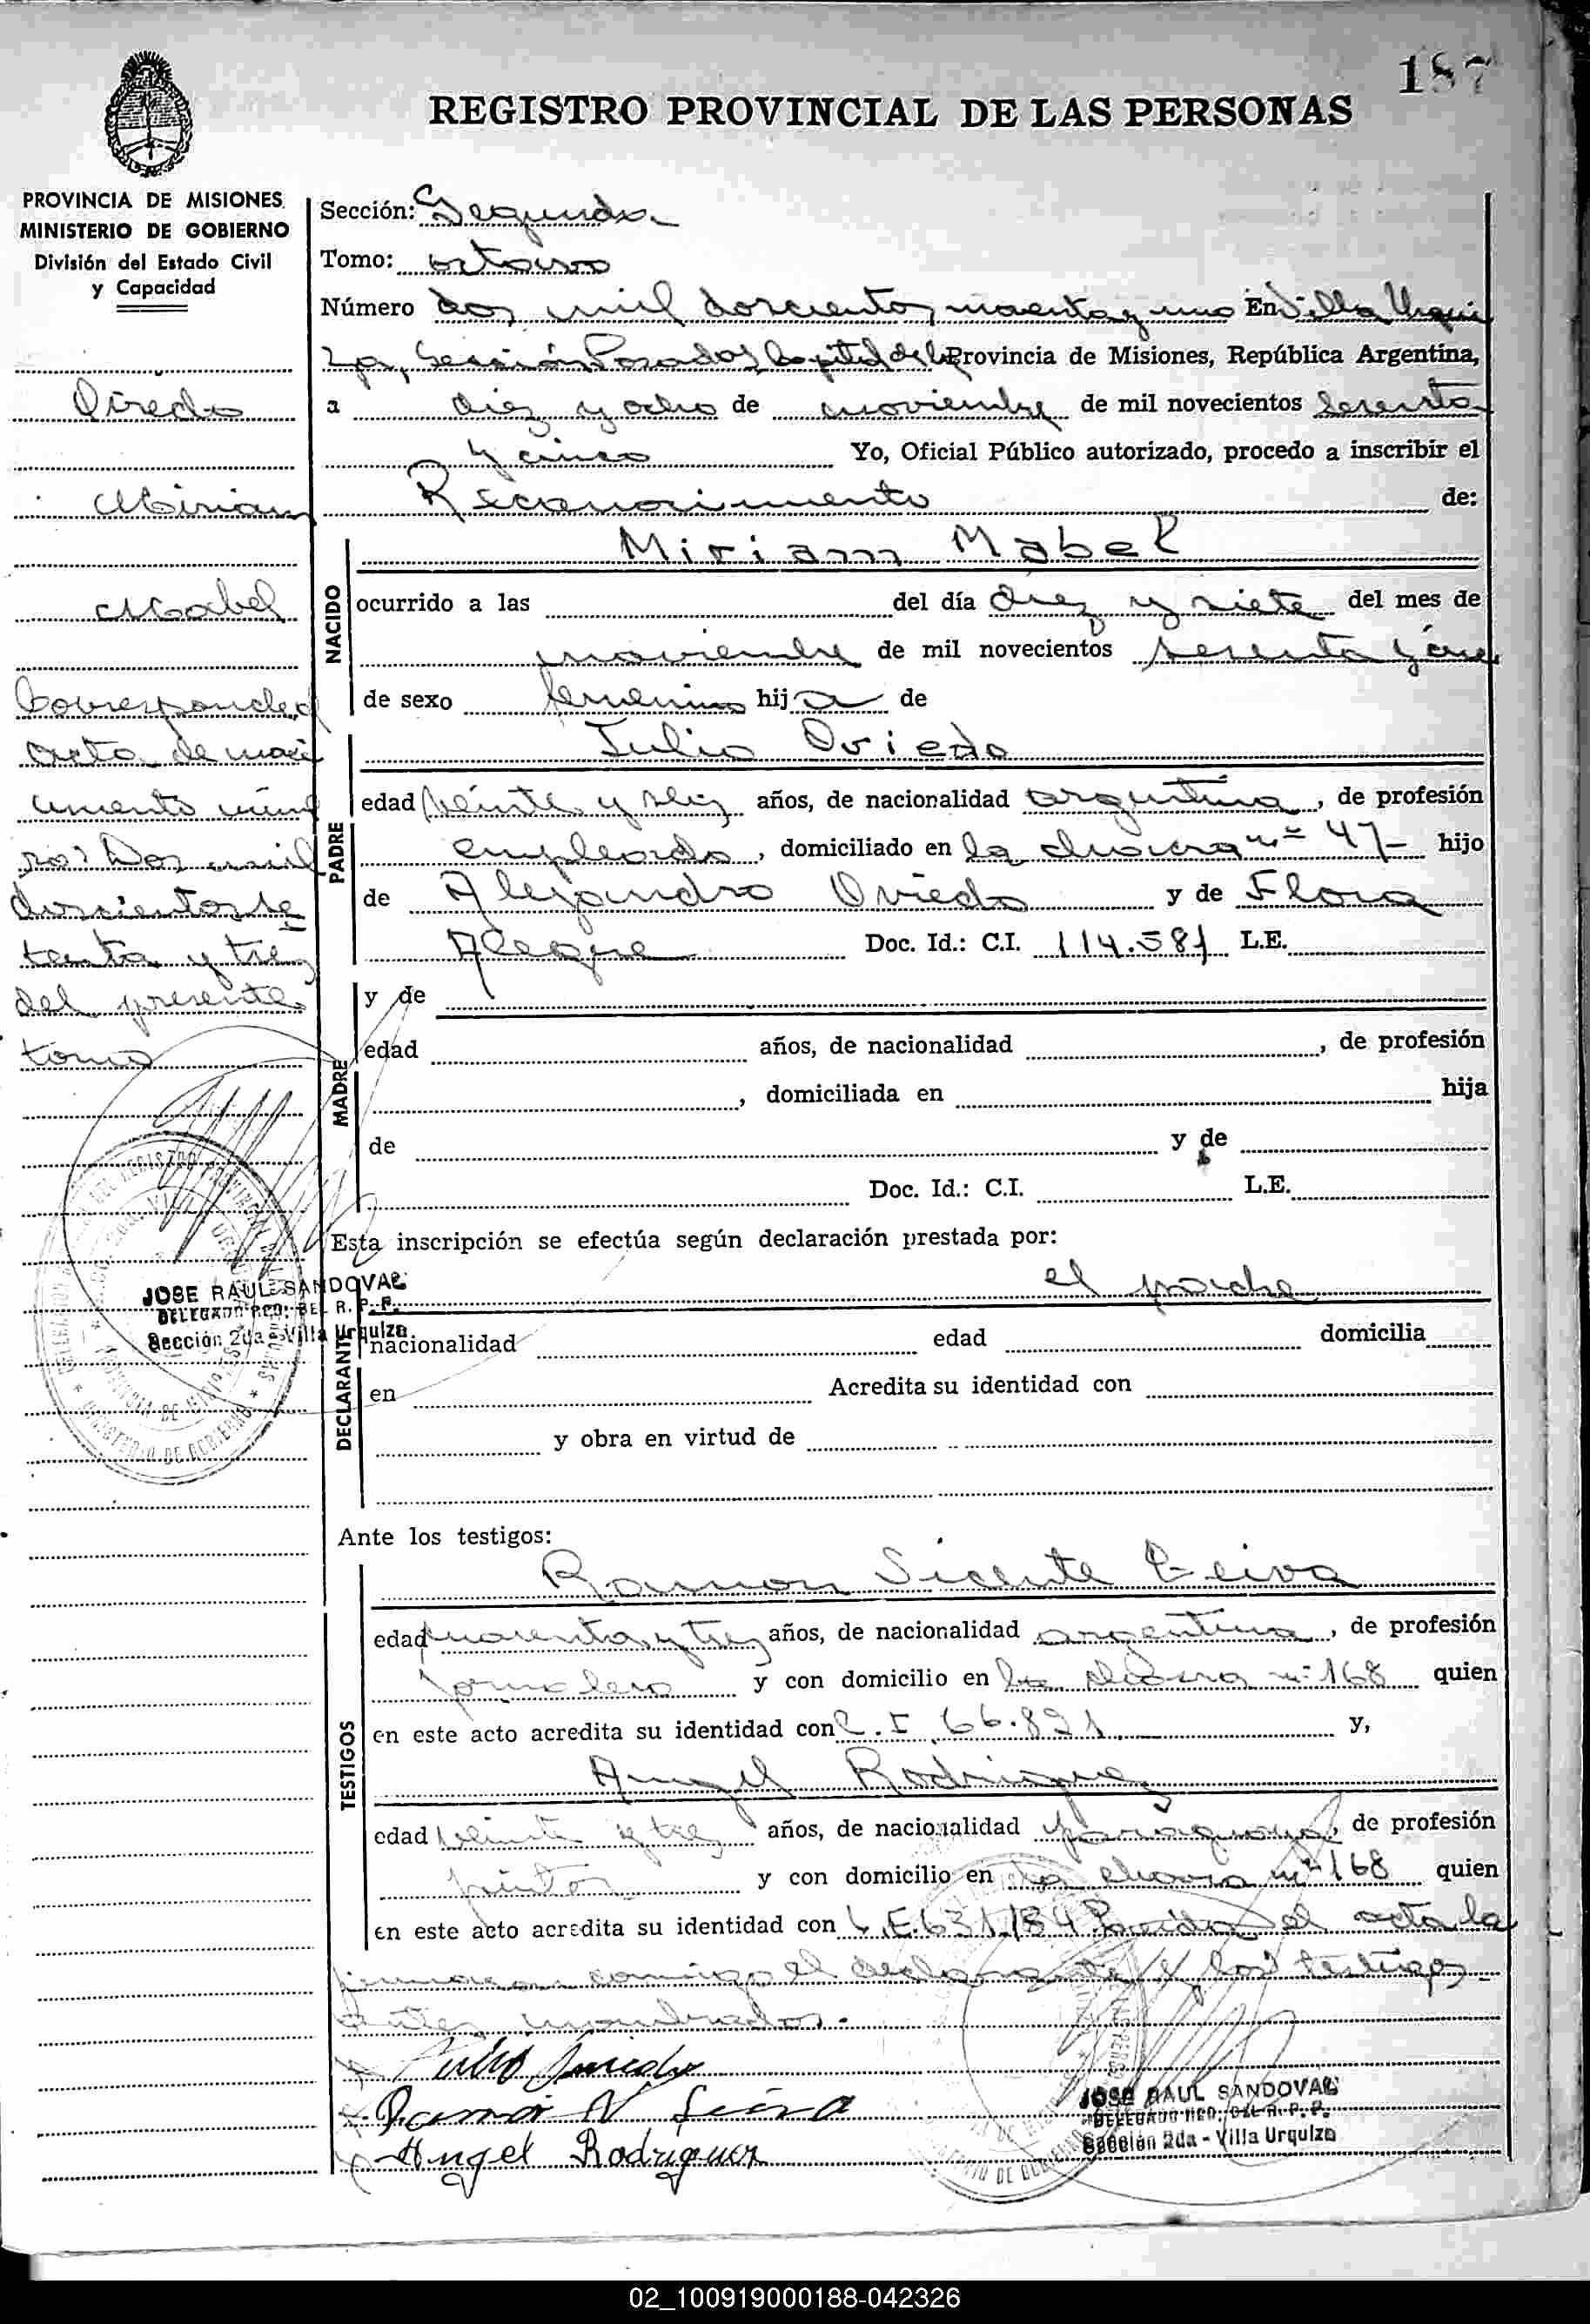 187
REGISTRO PROVINCIAL DE LAS PERSONAS
PROVINCIA DE MISIONES
MINISTERIO DE GOBIERNO
División del Estado Civil
y Capacidad
Oviedo
Mirian
Mabel
Corresponde al
acta de naci
miento núme
ro: Dos mil
doscientos se
tenta y tres
del presente
tomo
JOSE RAUL SANDOVAL
DELEGADO RCO. DEL R. P. P.
Sección 2da - Villa Urquiza
Sección: Segunda
Tomo: octavo
Número dos mil doscientos noventa y uno En Villa Urqui
za, Sección Posadas Capital de la Provincia de Misiones, República Argentina,
a diez y ocho de noviembre de mil novecientos sesenta
y cinco Yo, Oficial Público autorizado, procedo a inscribir el
Reconocimiento de:
NACIDO
Miriam Mabel
ocurrido a las del día diez y siete del mes de
noviembre de mil novecientos sesenta y cinco
de sexo femenino hija de
PADRE
Julio Oviedo
edad veinte y seis años, de nacionalidad argentina, de profesión
empleado, domiciliado en la chacra nº 47- hijo
de Alejandro Oviedo y de Flora
Alegre Doc. Id.: C.I. 114.581 L.E.
MADRE
y de
edad años, de nacionalidad , de profesión
, domiciliada en hija
de y de
Doc. Id.: C.I. L.E.
Esta inscripción se efectúa según declaración prestada por:
DECLARANTE
el padre
nacionalidad edad domicilia
en Acredita su identidad con
y obra en virtud de
Ante los testigos:
TESTIGOS
Ramon Vicente Leiva
edad cuarenta y tres años, de nacionalidad argentina, de profesión
jornalero y con domicilio en la chacra nº 168 quien
en este acto acredita su identidad con C.I. 66.821 y,
Angel Rodriguez
edad veinte y tres años, de nacionalidad paraguaya, de profesión
pintor y con domicilio en la chacra nº 168 quien
en este acto acredita su identidad con L.E. 631.184 el acta la
firmaron conmigo el declarante y los testigos
antes nombrados.
Julio Oviedo
Ramon V Leiva
Angel Rodriguez
JOSE RAUL SANDOVAL
DELEGADO RCO. DEL R. P. P.
Sección 2da - Villa Urquiza
02_100919000188-042326